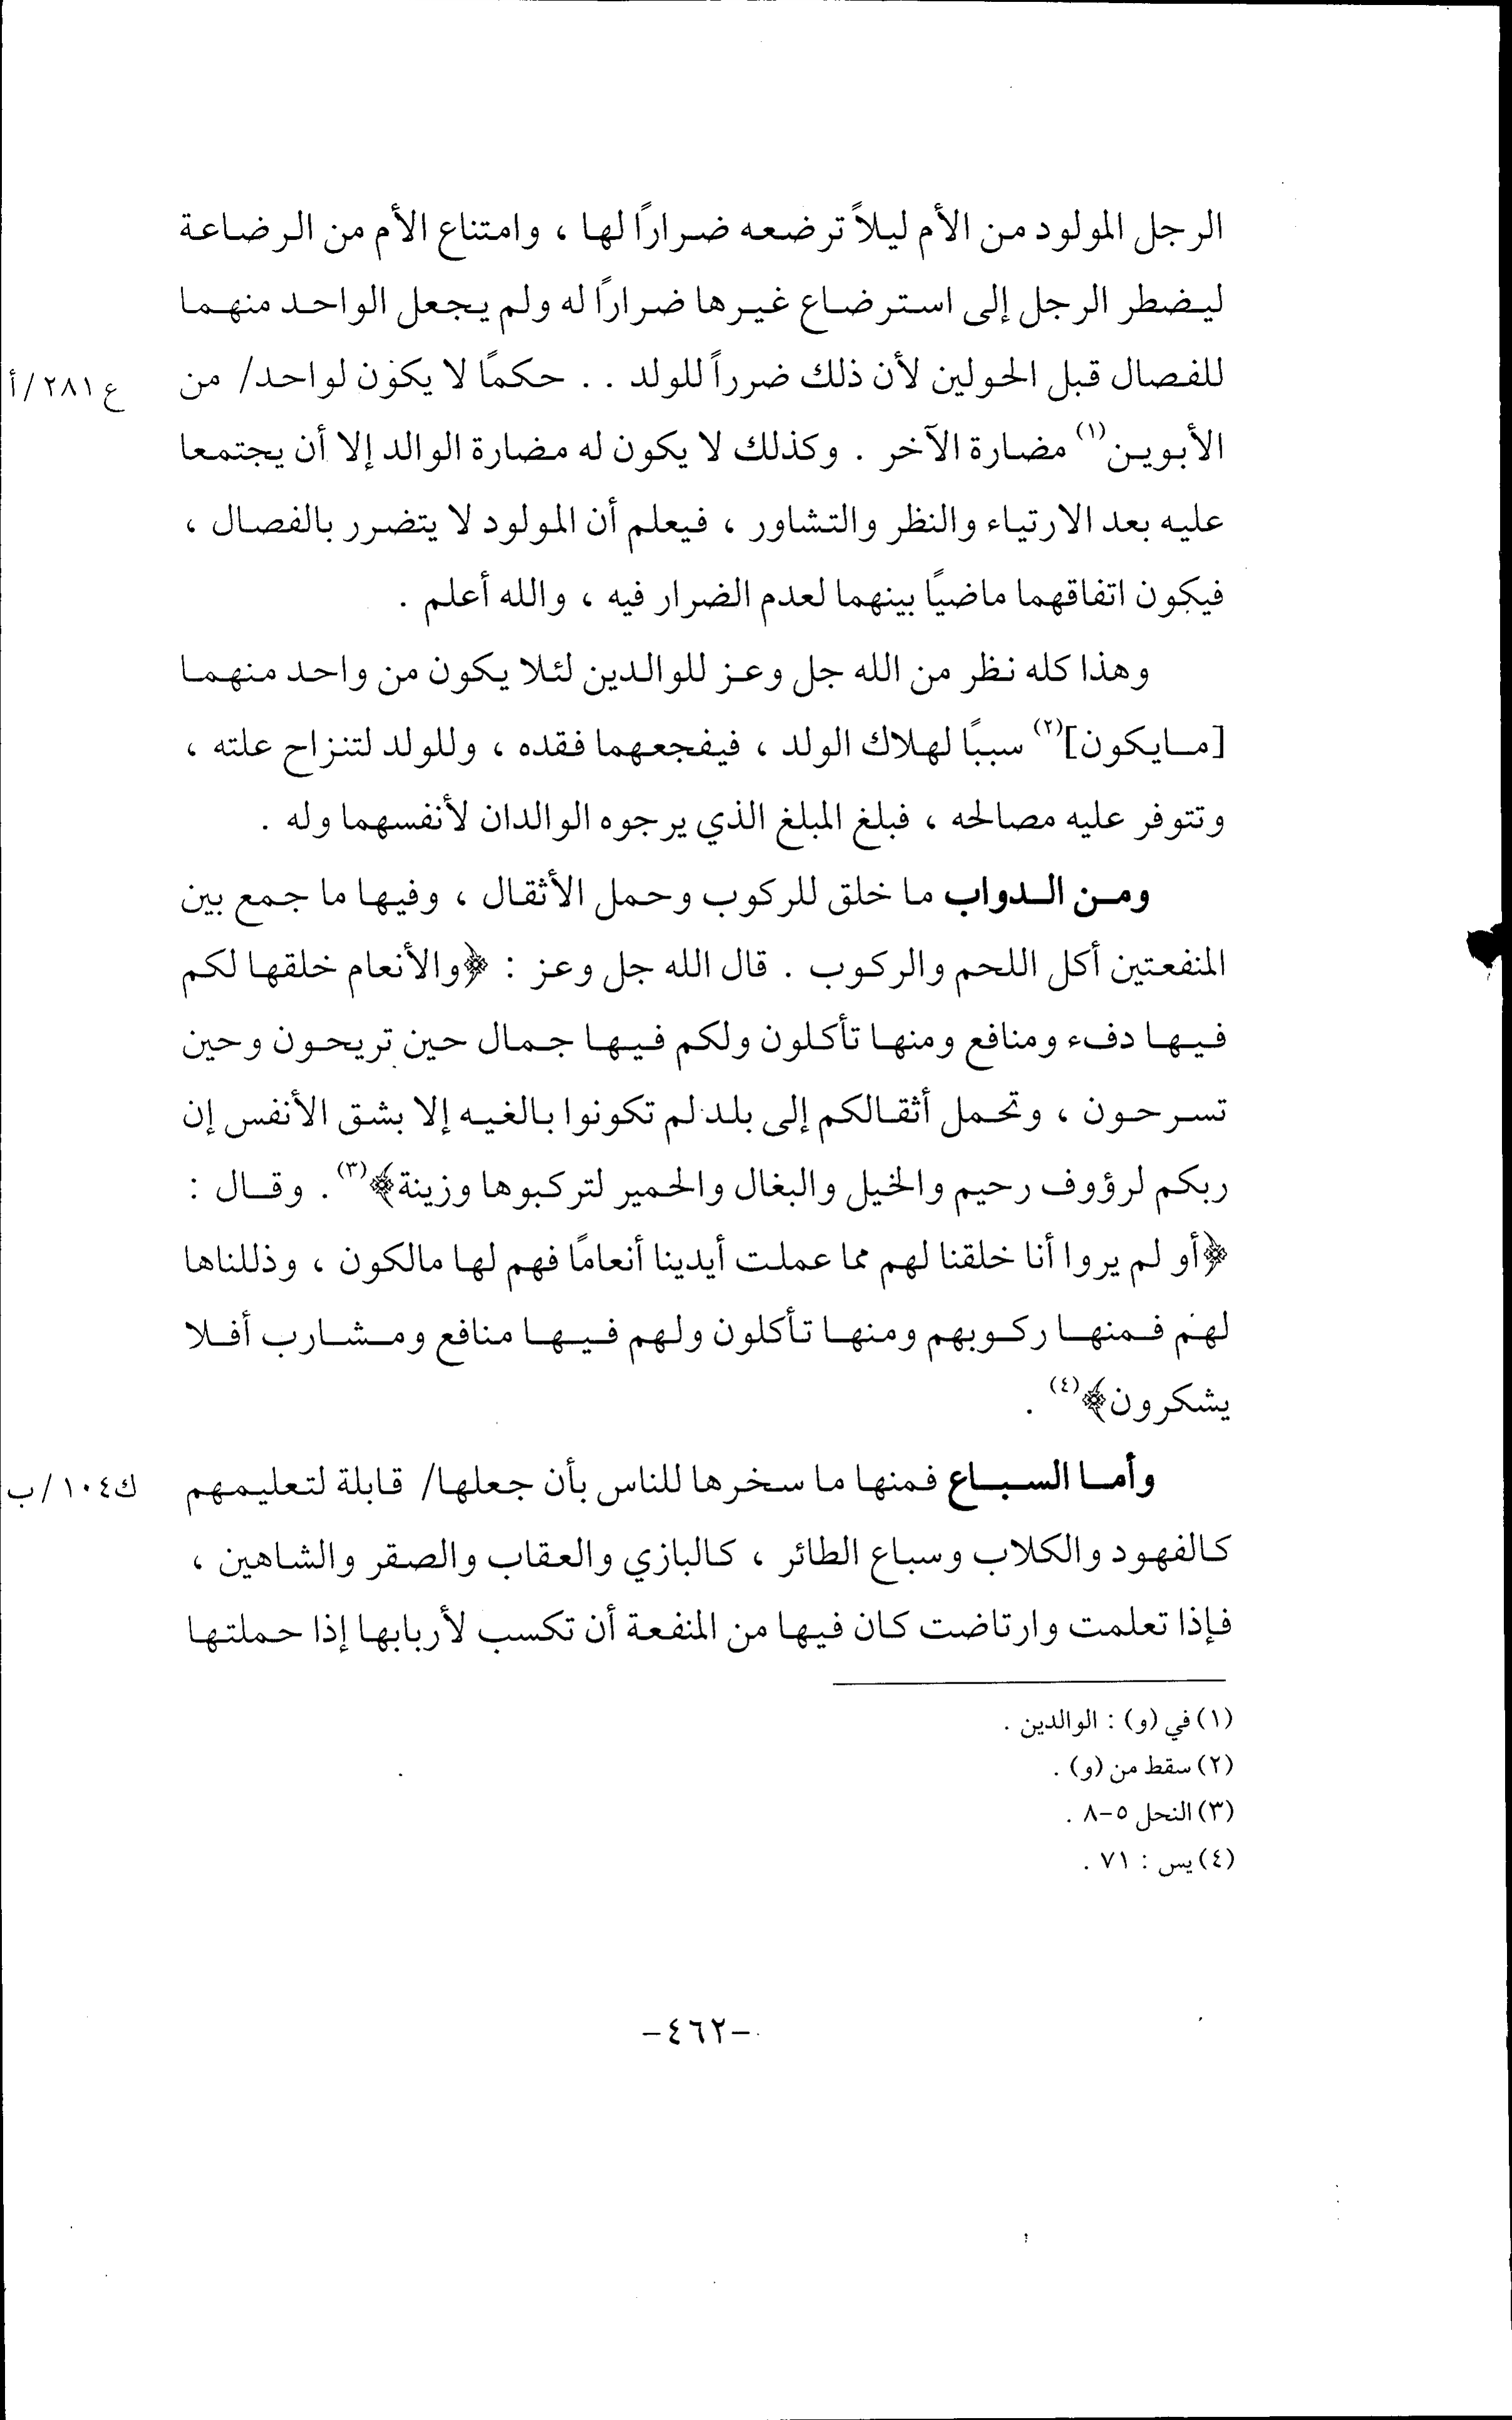 الرجل المولود من الأم ليلاً ترضعه ضرارًا لها ، وامتناع الأم من الرضاعة
ليضطر الرجل إلى استرضاع غيرها ضرارًا له ولم يجعل الواحد منهما
للفصال قبل الحولين لأن ذلك ضرراً للولد . . حكمًا لا يكون لواحد/ من
ع ٢٨١/أ
الأبوين(١) مضارة الآخر . وكذلك لا يكون له مضارة الوالد إلا أن يجتمعا
عليه بعد الارتياء والنظر والتشاور ، فيعلم أن المولود لا يتضرر بالفصال ،
فيكون اتفاقهما ماضيًا بينهما لعدم الضرار فيه ، والله أعلم .
وهذا كله نظر من الله جل وعز للوالدين لئلا يكون من واحد منهما
[مايكون](٢) سببًا لهلاك الولد ، فيفجعهما فقده ، وللولد لتنزاح علته ،
وتتوفر عليه مصالحه ، فبلغ المبلغ الذي يرجوه الوالدان لأنفسهما وله .
ومن الدواب ما خلق للركوب وحمل الأثقال ، وفيها ما جمع بين
المنفعتين أكل اللحم والركوب . قال الله جل وعز : ﴿والأنعام خلقها لكم
فيها دفء ومنافع ومنها تأكلون ولكم فيها جمال حين تريحون وحين
تسرحون ، وتحمل أثقالكم إلى بلد لم تكونوا بالغيه إلا بشق الأنفس إن
ربكم لرؤوف رحيم والخيل والبغال والحمير لتركبوها وزينة﴾(٣) . وقال :
﴿أو لم يروا أنا خلقنا لهم مما عملت أيدينا أنعامًا فهم لها مالكون ، وذللناها
لهم فمنها ركوبهم ومنها تأكلون ولهم فيها منافع ومشارب أفلا
يشكرون﴾(٤) .
وأما السباع فمنها ما سخرها للناس بأن جعلها/ قابلة لتعليمهم
ك١٠٤/ب
كالفهود والكلاب وسباع الطائر ، كالبازي والعقاب والصقر والشاهين ،
فإذا تعلمت وارتاضت كان فيها من المنفعة أن تكسب لأربابها إذا حملتها
(١) في (و) : الوالدين .
(٢) سقط من (و) .
(٣) النحل ٥-٨ .
(٤) يس : ٧١ .
-٤٦٢-